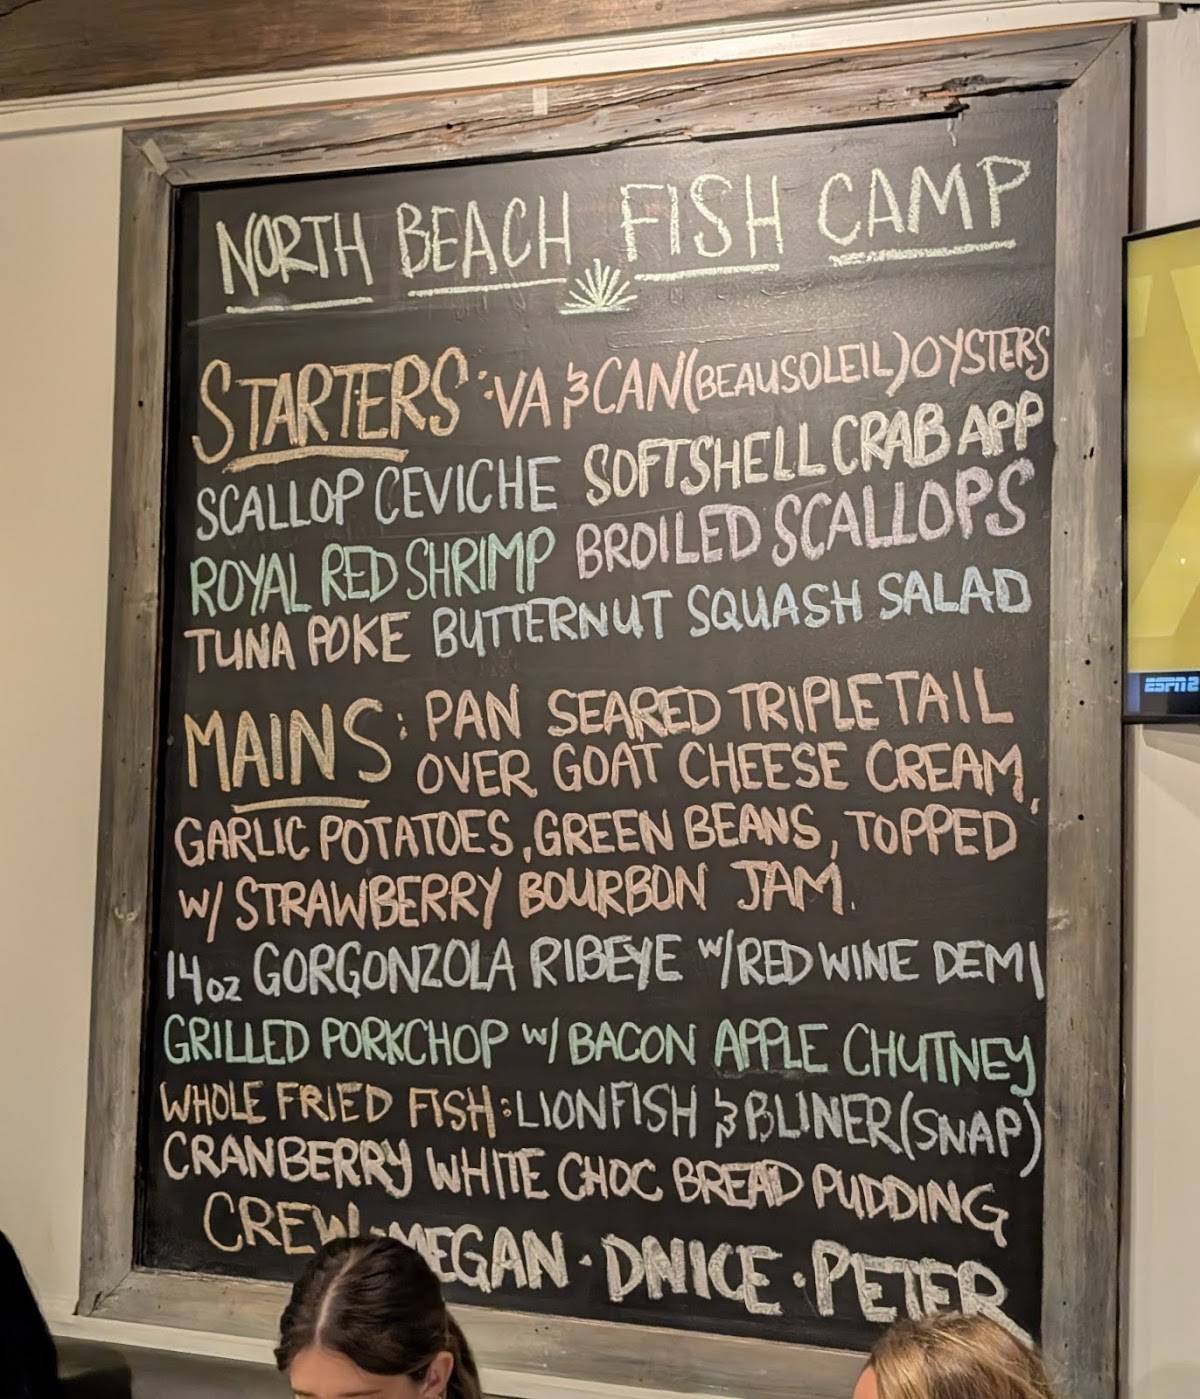 NORTH BEACH FISH CAMP
STARTERS: VA & CAN (BEAUSOLEIL) OYSTERS
SCALLOP CEVICHE SOFTSHELL CRAB APP
ROYAL RED SHRIMP BROILED SCALLOPS
TUNA POKE BUTTERNUT SQUASH SALAD
MAINS: PAN SEARED TRIPLETAIL
OVER GOAT CHEESE CREAM,
GARLIC POTATOES, GREEN BEANS, TOPPED
W/ STRAWBERRY BOURBON JAM.
14oz GORGONZOLA RIBEYE W/ RED WINE DEMI
GRILLED PORKCHOP W/ BACON APPLE CHUTNEY
WHOLE FRIED FISH: LIONFISH & BLINER (SNAP)
CRANBERRY WHITE CHOC BREAD PUDDING
CREW · MEGAN · DNICE · PETER
ESPN2